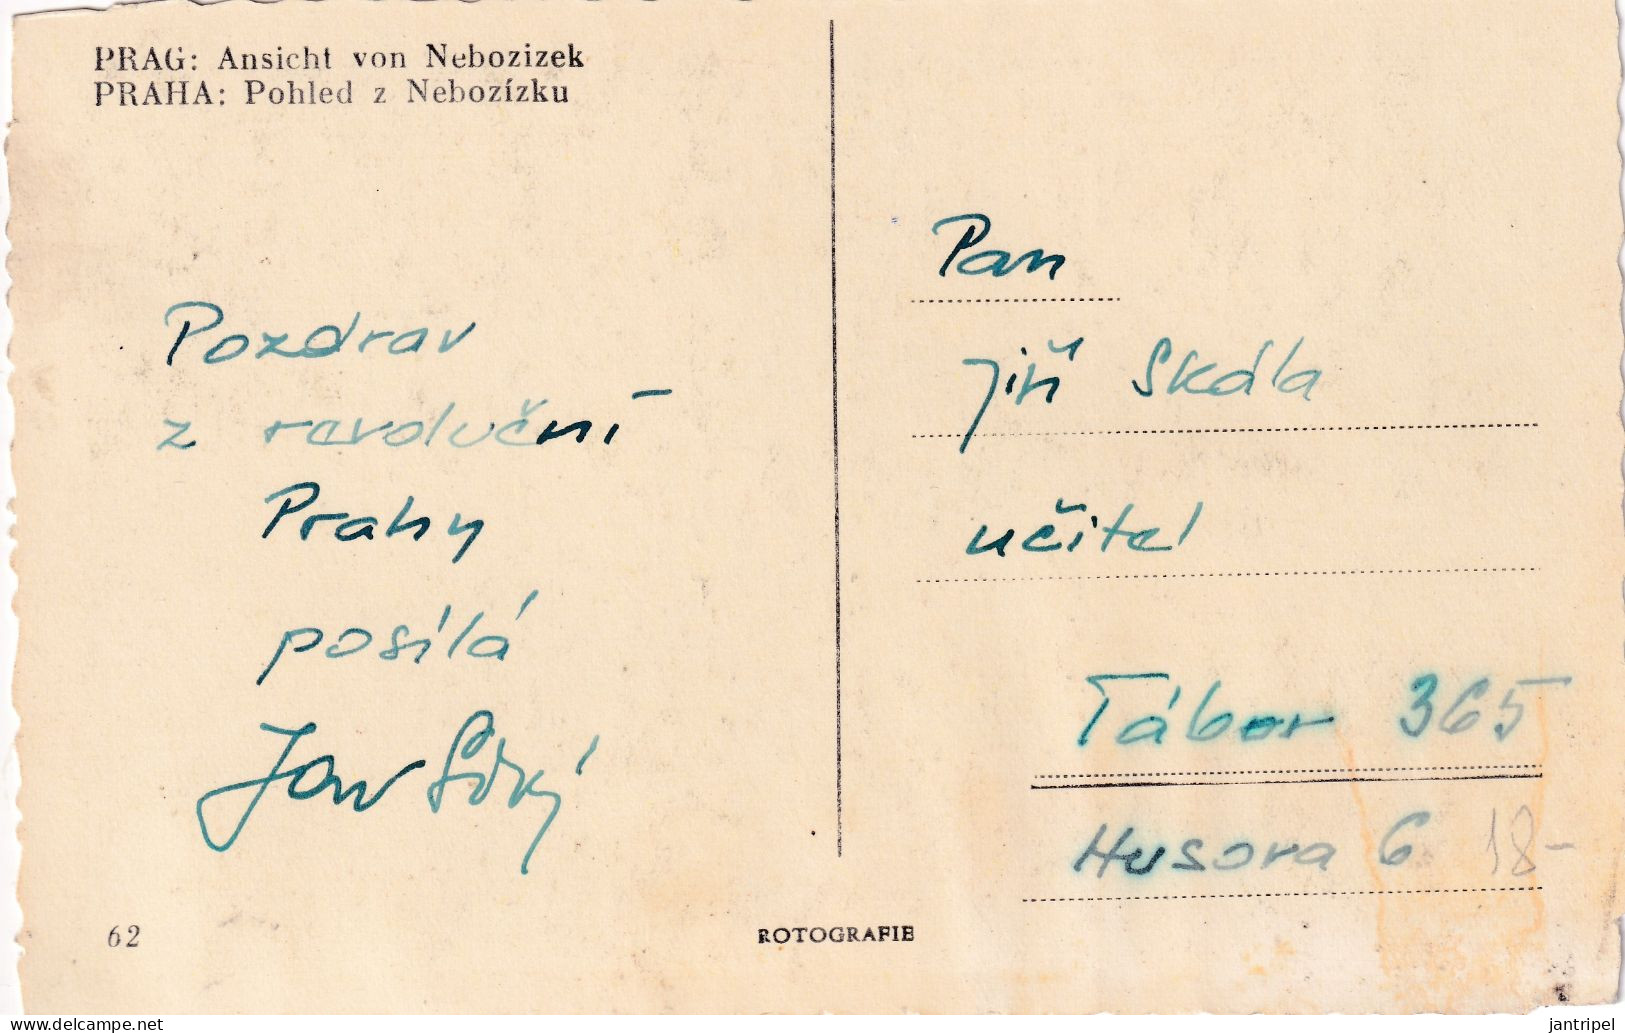 PRAG: Ansicht von Nebozizek
PRAHA: Pohled z Nebozízku
Pozdrav
z revoluční
Prahy
posílá
Jan
62
ROTOGRAFIE
Pan
Jiří Skála
učitel
Tábor 365
Husova 6
18-
jantripel